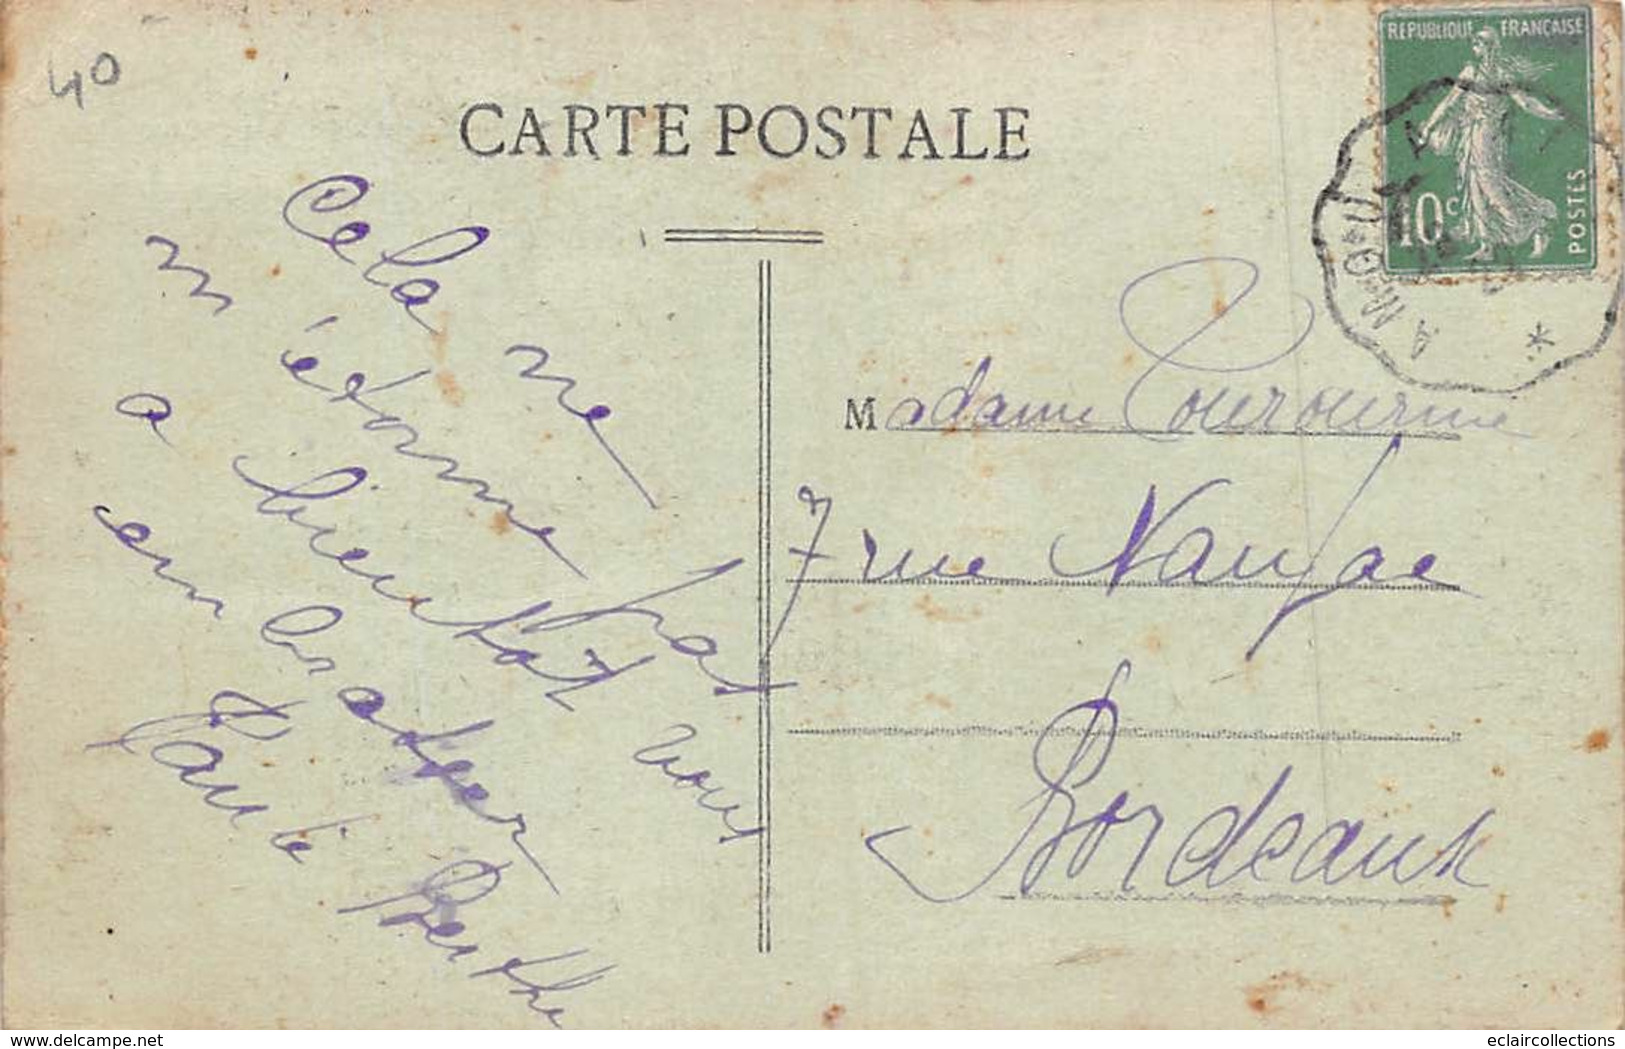 40
CARTE POSTALE
REPUBLIQUE FRANÇAISE
10c
POSTES
Cela ne
m'étonne pas
a bientôt vous
embrasser
Berthe
Madame
7 rue Naujac
Bordeaux
delcampe.net
eclaircollections